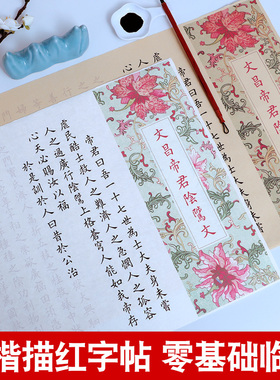 文昌帝君陰騭文
文昌帝君陰騭文
帝君曰吾一十七世為士大夫身未嘗
虐民酷吏救人之難濟人之急憫人之孤容
人之過廣行陰騭上格蒼穹人能如我存
心天必賜汝以福
於是訓於人曰昔於公治
楷描红字帖 零基础临